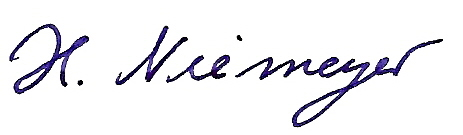 H. Niemeyer